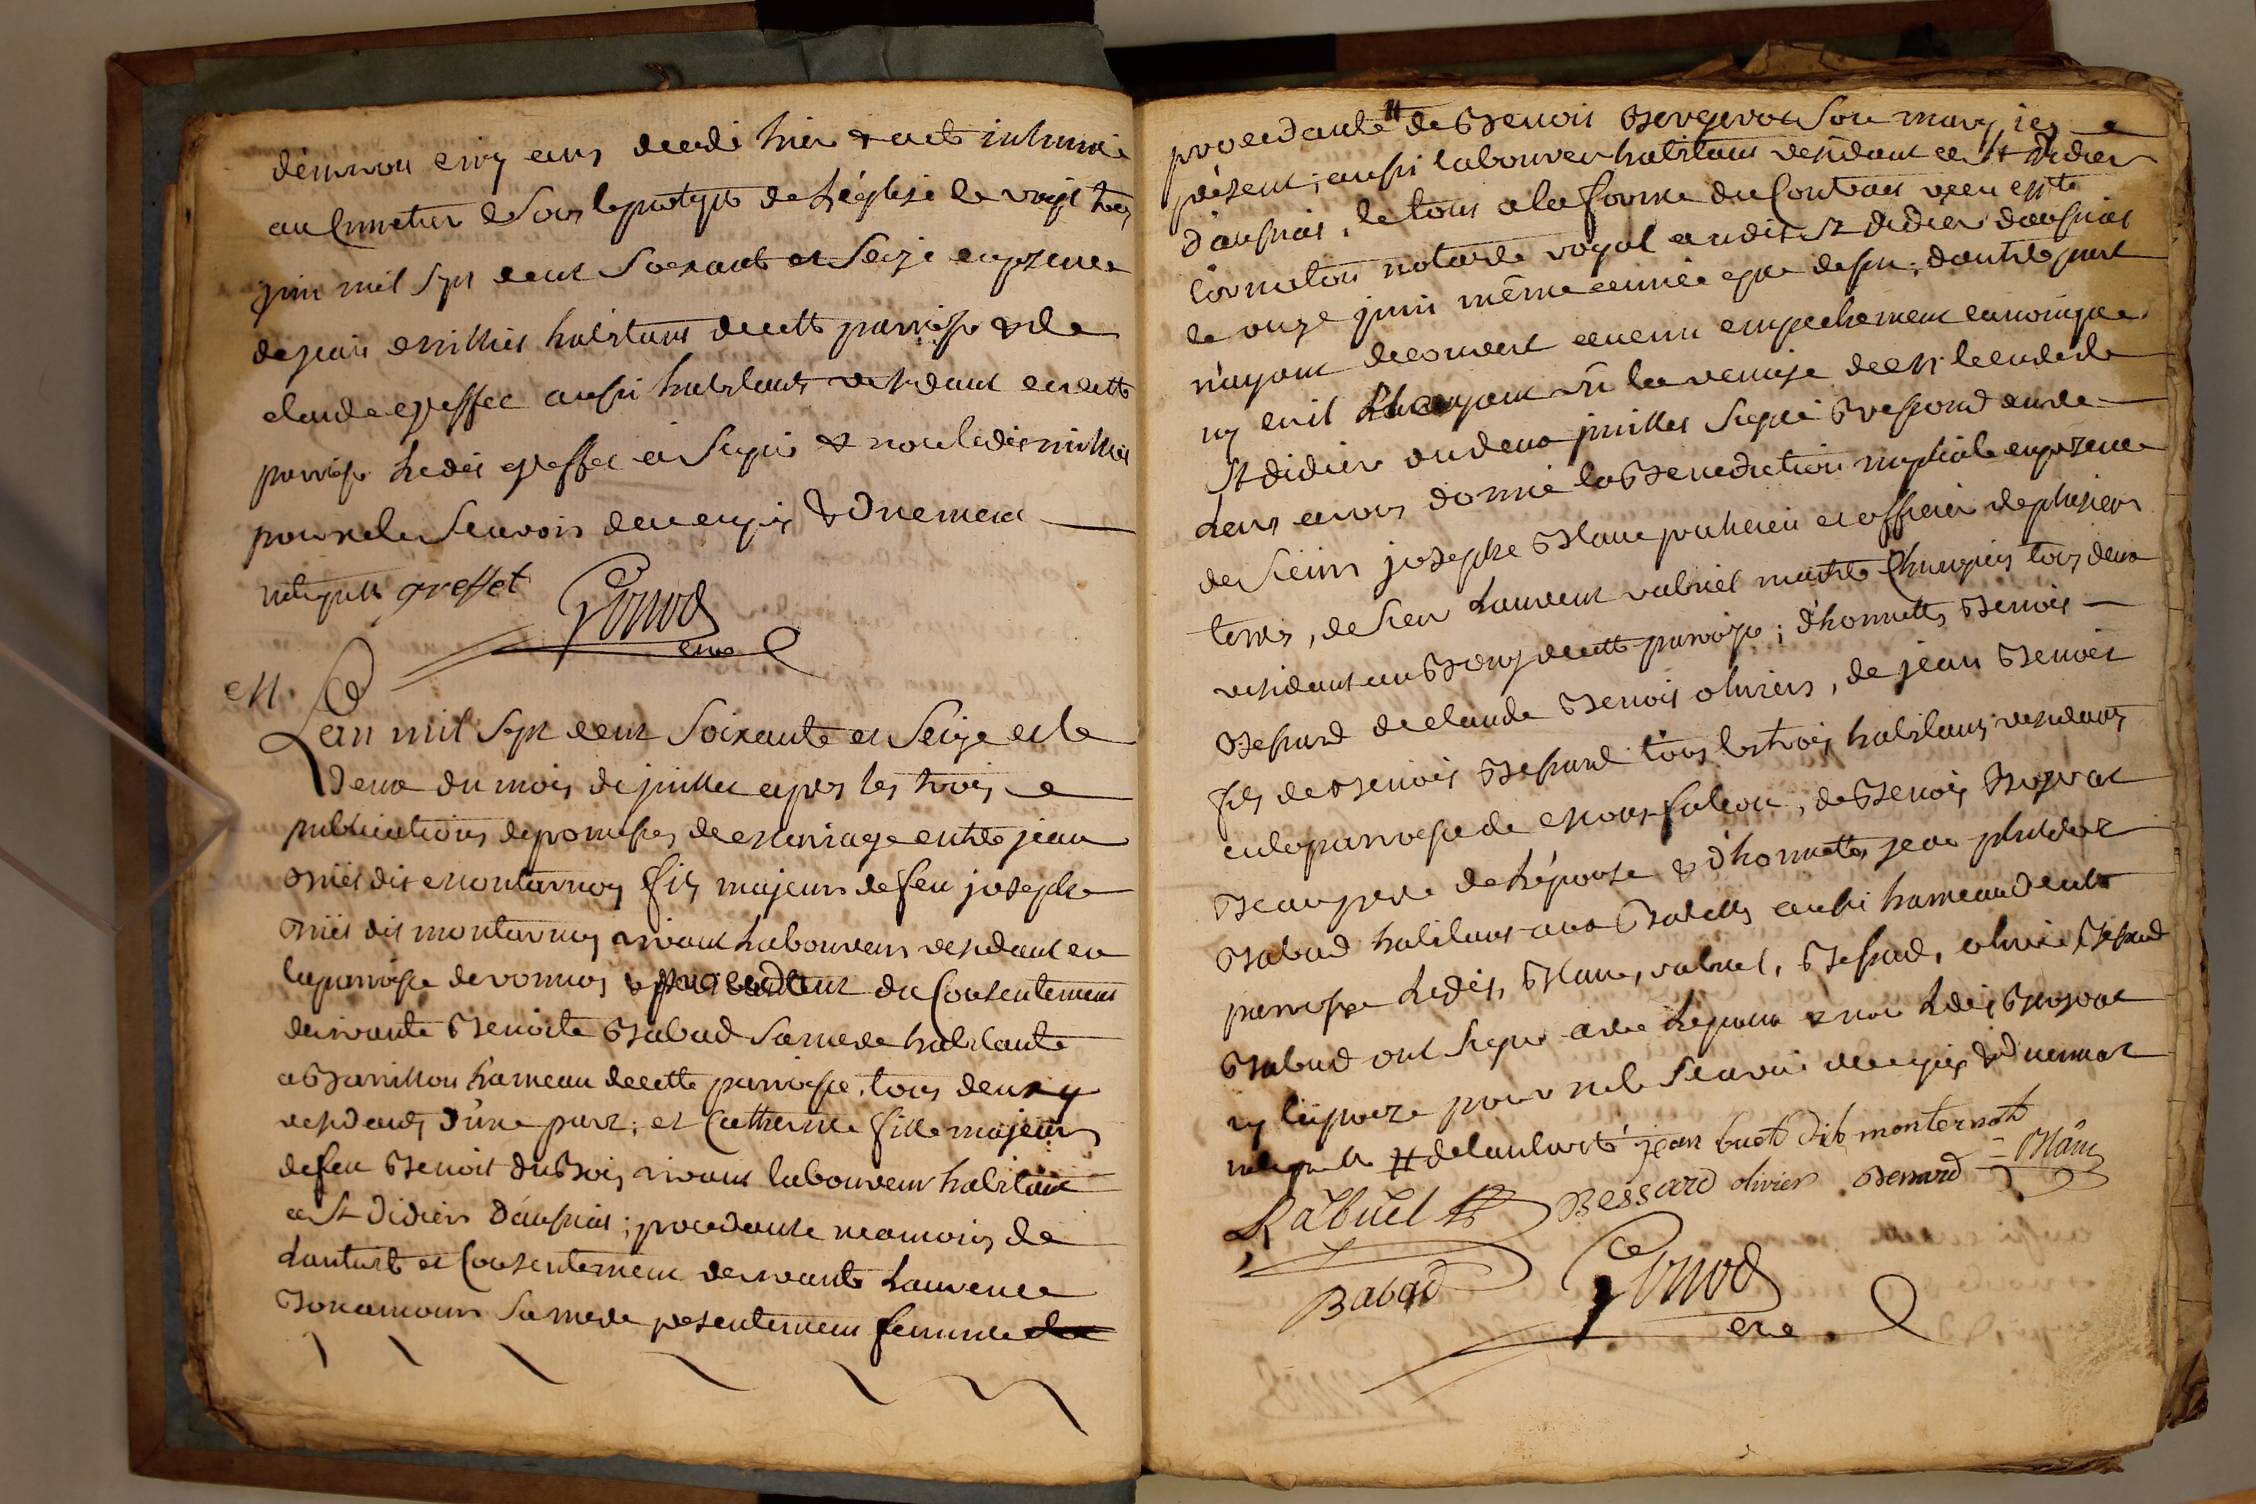 démron cinq ans decedé hier & a eté inhumé
au Cimetier & Sous le protype de L'église le vingt trois
juin mil Sept cent Soixante et Seize en presence
de jean millies habitant de cette parroisse & de
claude greffet aussi habitant residant en cette
parroisse Ledit greffet a Signé & non ledit millies
pour ne le Scavoir de ce enquis & Duement
interpellé greffet
Gonod
curé
M.
L'an mil Sept cent Soixante et Seize et le
deux du mois de juillet apres les trois
publications de promesses de mariage entre jean
dit montarnoy fils majeur de feu joseph
dit montarnoy vivant Laboureur residant en
la parroisse de vonnas & procedant du Consentement
de vivante Benoite Babad Sa mere habitante
a Barvillon hameau de cette parroisse, tous deux y
residants d'une part; et Catherine fille majeure
de feu Benoit DuBois vivant laboureur habitant
a St Didier d'aussiat; procedante neamoins de
L'autorté et Consentement de vivante Laurence
Bonamour Sa mere presentement femme
procedante # de Benoit Bergerot Son mary icy
présent, aussi laboureur habitant residant a St Didier
d'aussiat, le tout a la forme du Contrat receu
Cormaton notaire royal audit St Didier d'aussiat
le onze juin même année que dessus; d'autre part
n'ayant decouvert aucun empechement canonique
ny civil & ayant vû la remise de Mr le curé de
St Didier du deux juillet Signé
Leur avons donné la Benediction nuptiale en presence
de Sieur joseph Blanc praticien et officier de plusieurs
terres, de Sieur Laurent rabuel maitre Chirurgien tous deux
residants au Bourg de cette parroisse; d'honnettes Benoit
Bessard de claude Benoit olivier, de jean Benoit
fils de Benoit Bessard tous les trois habitants residants
en la parroisse de Montfalcon, de Benoit Bergerot
Beaupere de L'épouse & d'honnette jean philibert
Babad habitant aux aussi hameau de cette
parroisse Ledits, Blanc, rabuel, Bessard, olivier, Bessard
Babad ont Signé avec L'epoux & non Ledit Bergerot
ny L'epouze pour ne le Scavoir de ce enquis & Duement
interpellés # de l'autorté jean buet dit monternoth
Rabuel Bessard olivier Bessard Blanc
Babad Gonod
curé